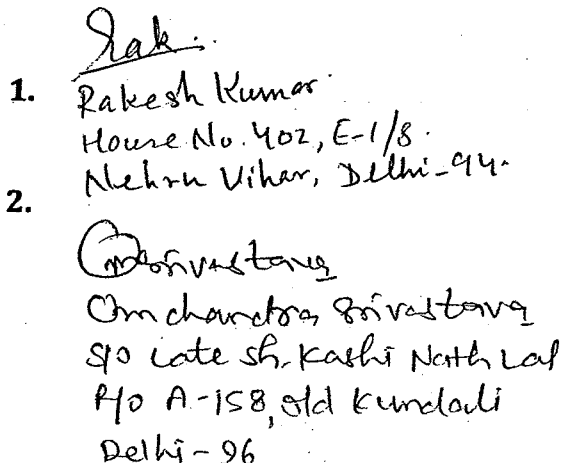 Rak..
1. Rakesh Kumar
House No. 402, E-1/8.
Nehru Vihar, Delhi-94.
2.
Omsrivastava
Om chandra Srivastava
S/o Late Sh. Kashi Nath Lal
R/o A-158, old Kundali
Delhi - 96